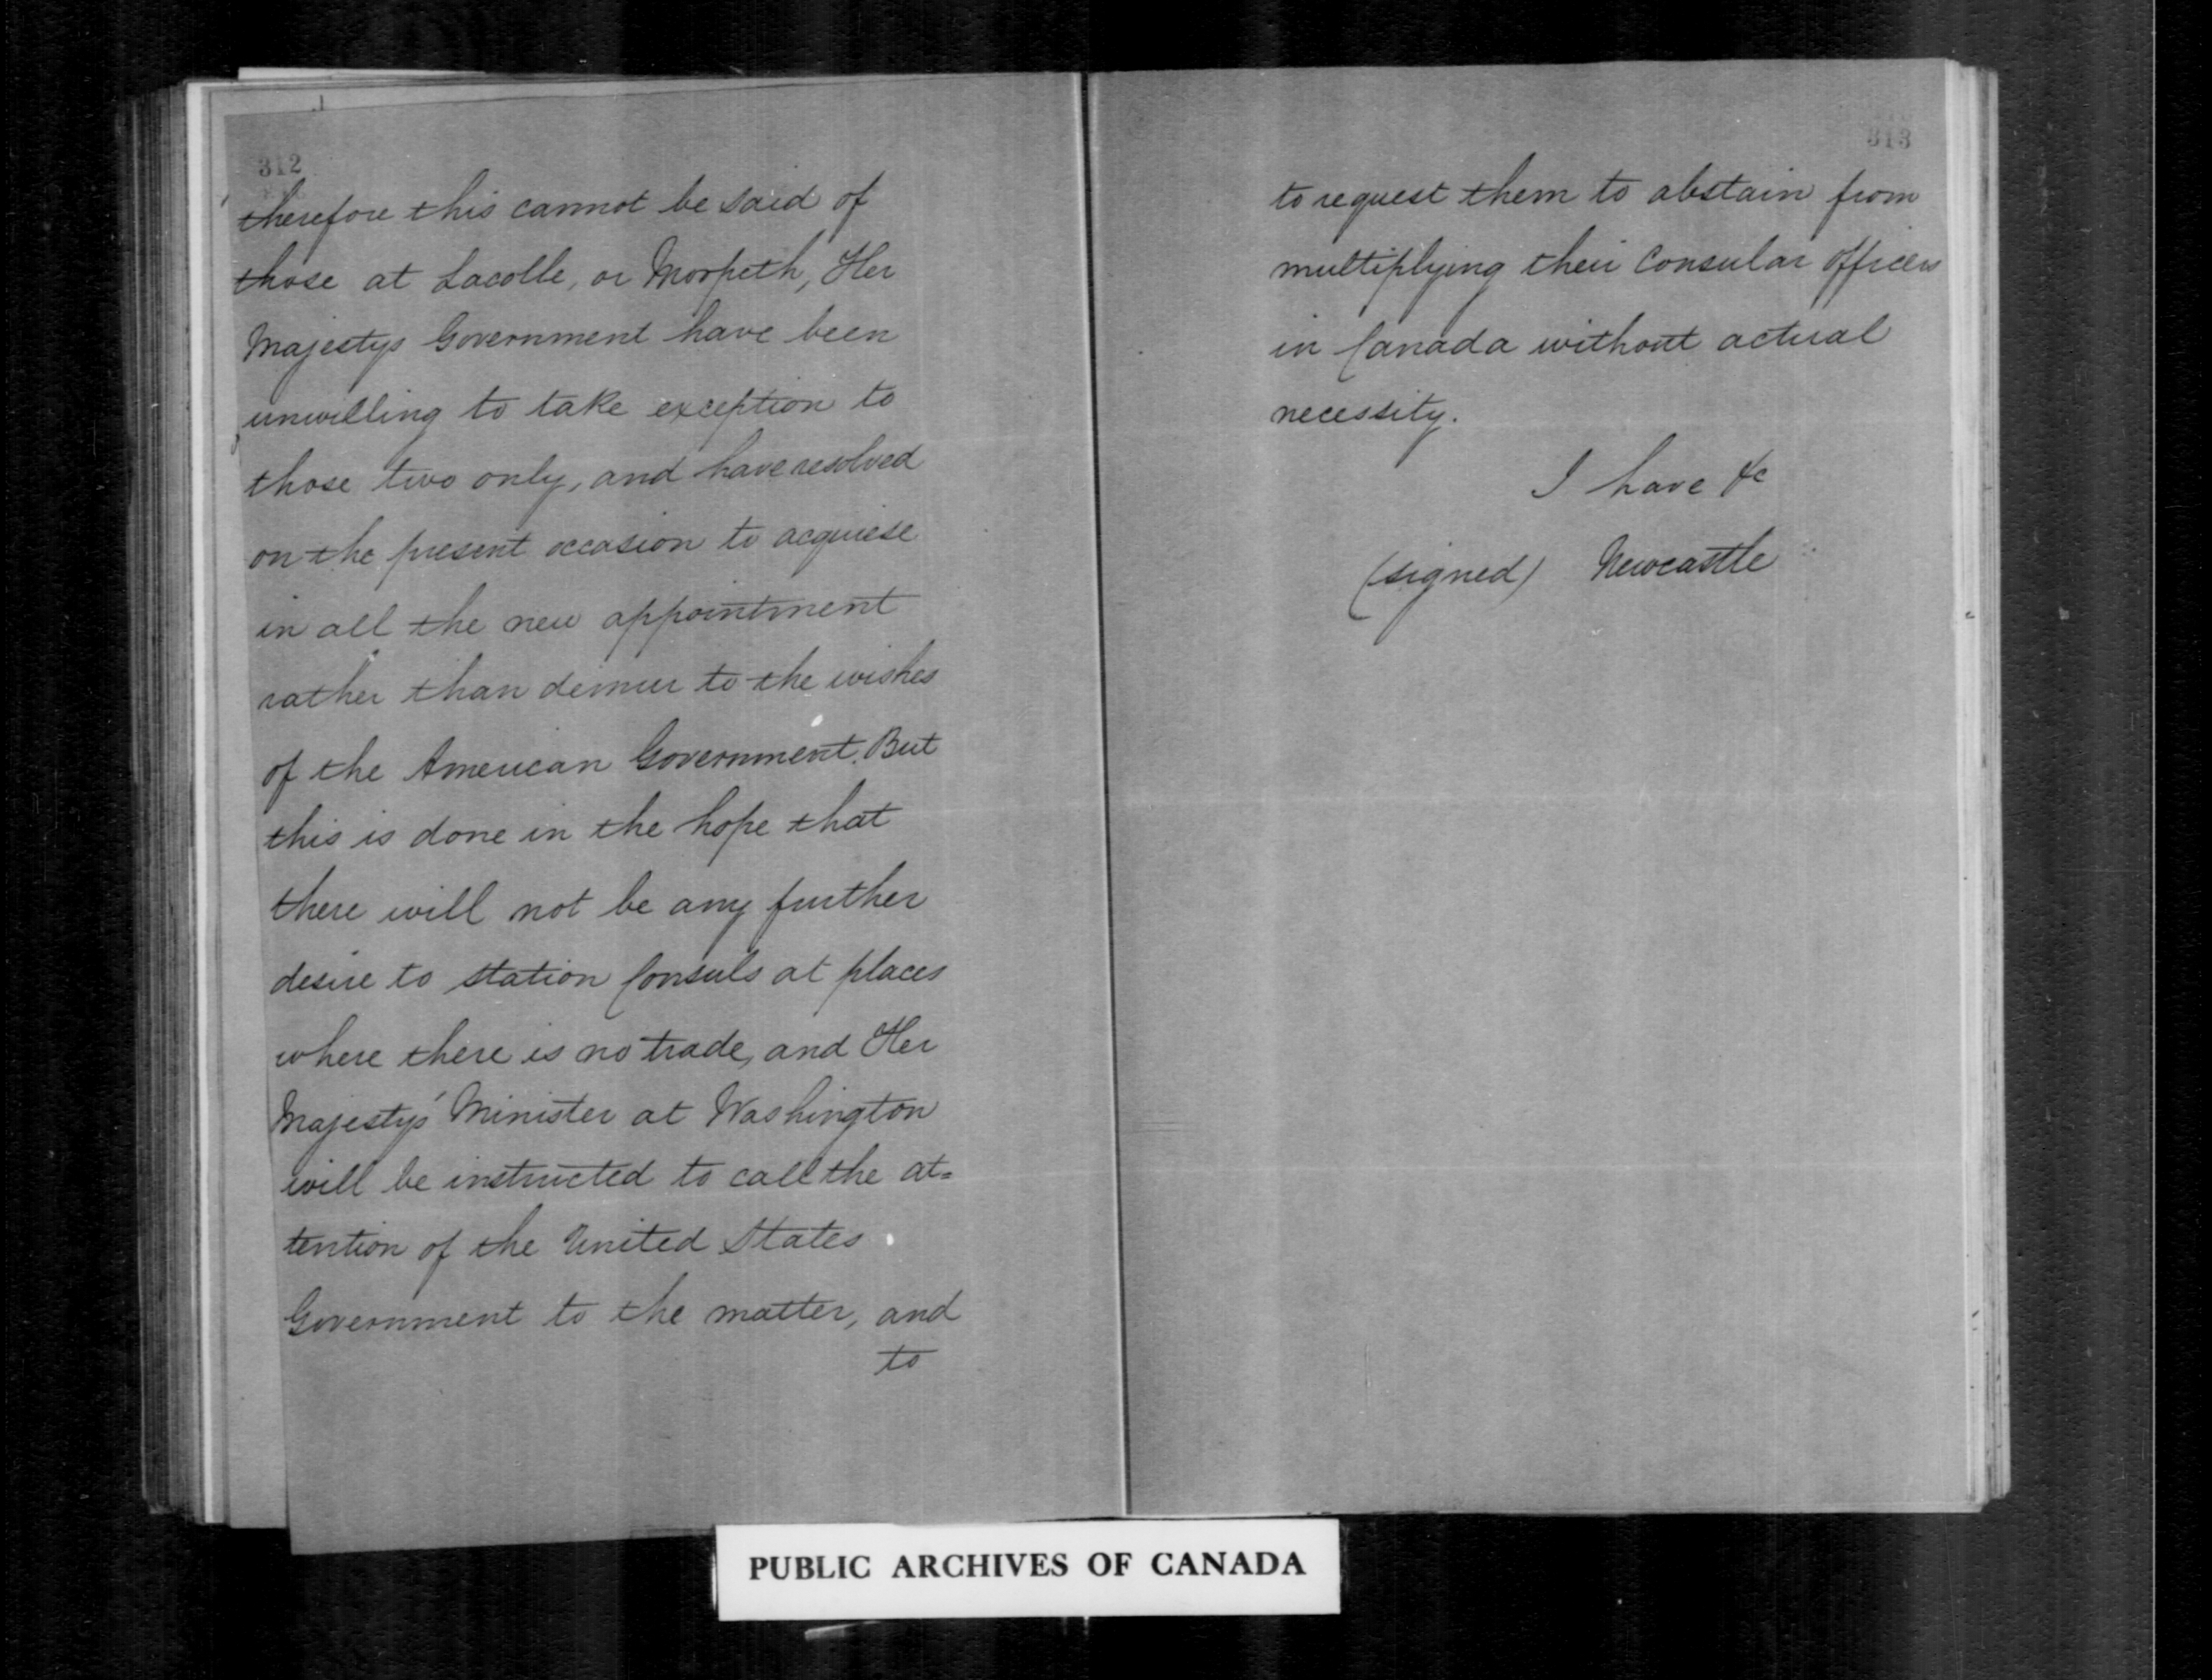 312
therefore this cannot be said of
those at Lacolle, or Morpeth, Her
Majestys Government have been
unwilling to take exception to
those two only, and have resolved
on the present occasion to acquiese
in all the new appointment
rather than demur to the wishes
of the American Government. But
this is done in the hope that
there will not be any further
desire to station Consuls at places
where there is no trade, and Her
Majestys' Minister at Washington
will be instructed to call the at=
tention of the United States
Government to the matter, and
to
313
to request them to abstain from
multiplying their Consular Officers
in Canada without actual
necessity.
I have &c
(signed) Newcastle
PUBLIC ARCHIVES OF CANADA